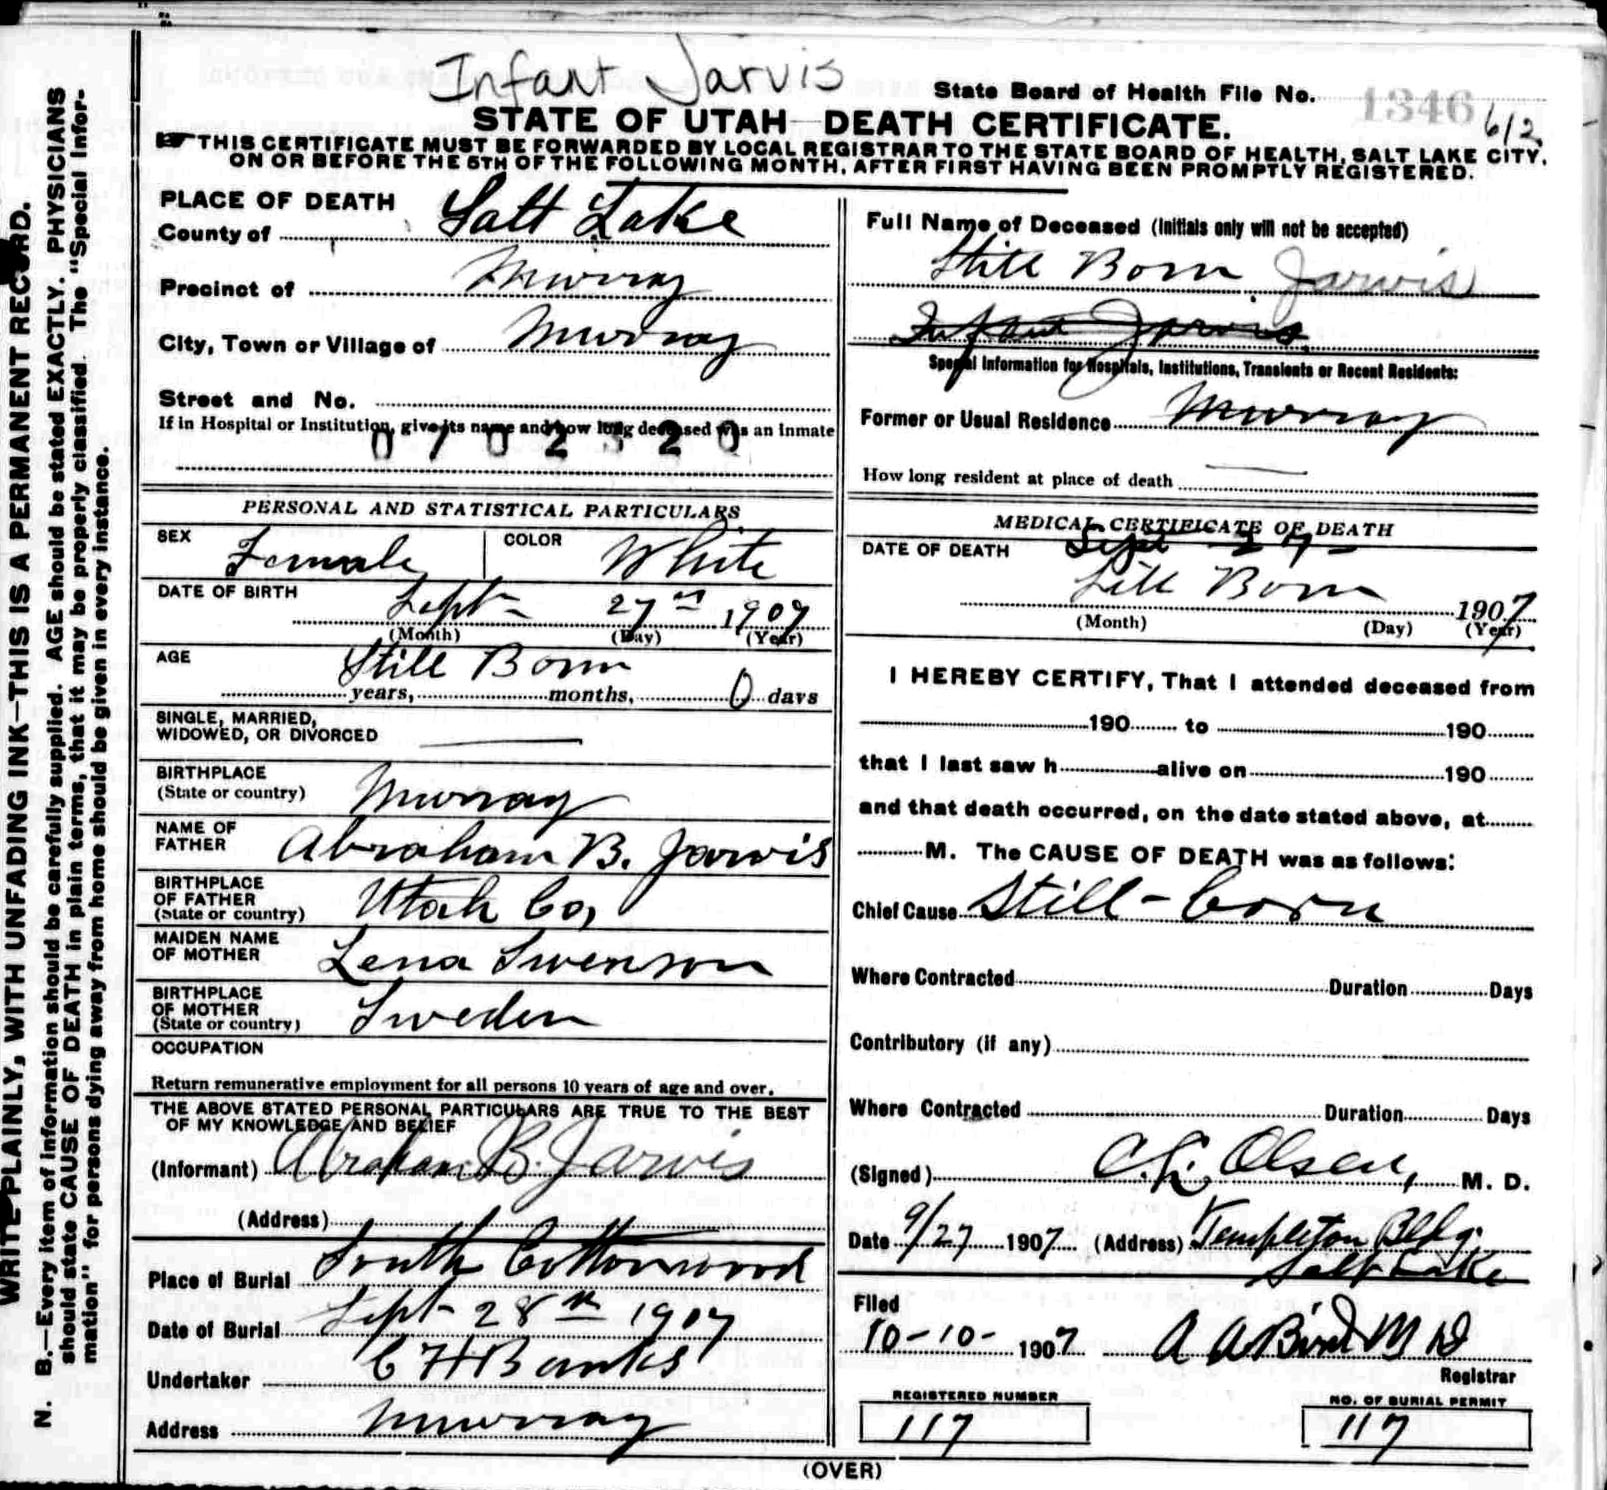 Infant Jarvis
State Board of Health File No. 1346
STATE OF UTAH DEATH CERTIFICATE. 612
THIS CERTIFICATE MUST BE FORWARDED BY LOCAL REGISTRAR TO THE STATE BOARD OF HEALTH, SALT LAKE CITY,
ON OR BEFORE THE 5TH OF THE FOLLOWING MONTH, AFTER FIRST HAVING BEEN PROMPTLY REGISTERED.
WRITE PLAINLY, WITH UNFADING INK—THIS IS A PERMANENT RECORD.
N. B.—Every item of information should be carefully supplied. AGE should be stated EXACTLY. PHYSICIANS
should state CAUSE OF DEATH in plain terms, that it may be properly classified. The "Special Infor-
mation" for persons dying away from home should be given in every instance.
PLACE OF DEATH
County of Salt Lake
Precinct of Murray
City, Town or Village of Murray
Street and No.
If in Hospital or Institution, give its name and how long deceased was an Inmate
0702320
PERSONAL AND STATISTICAL PARTICULARS
SEX Female COLOR White
DATE OF BIRTH Sept 27th 1907
(Month) (Day) (Year)
AGE Still Born
years, months, 0 days
SINGLE, MARRIED,
WIDOWED, OR DIVORCED
BIRTHPLACE
(State or country) Murray
NAME OF
FATHER Abraham B. Jarvis
BIRTHPLACE
OF FATHER
(State or country) Utah Co,
MAIDEN NAME
OF MOTHER Lena Swenson
BIRTHPLACE
OF MOTHER
(State or country) Sweden
OCCUPATION
Return remunerative employment for all persons 10 years of age and over.
THE ABOVE STATED PERSONAL PARTICULARS ARE TRUE TO THE BEST
OF MY KNOWLEDGE AND BELIEF
(Informant) Abraham B. Jarvis
(Address)
Place of Burial South Cottonwood
Date of Burial Sept 28th 1907
Undertaker C H Banks
Address Murray
Full Name of Deceased (Initials only will not be accepted)
Still Born Jarvis
Infant Jarvis
Special Information for Hospitals, Institutions, Transients or Recent Residents:
Former or Usual Residence Murray
How long resident at place of death
MEDICAL CERTIFICATE OF DEATH
DATE OF DEATH Sept 27
Still Born 1907
(Month) (Day) (Year)
I HEREBY CERTIFY, That I attended deceased from
190 to 190
that I last saw h alive on 190
and that death occurred, on the date stated above, at
M. The CAUSE OF DEATH was as follows:
Chief Cause Still-born
Where Contracted Duration Days
Contributory (if any)
Where Contracted Duration Days
(Signed) C. L. Olsen, M. D.
Date 9/27 1907 (Address) Templeton Bldg.
Salt Lake
Filed
10-10- 1907 A A Bird M D
Registrar
REGISTERED NUMBER
117
NO. OF BURIAL PERMIT
117
(OVER)